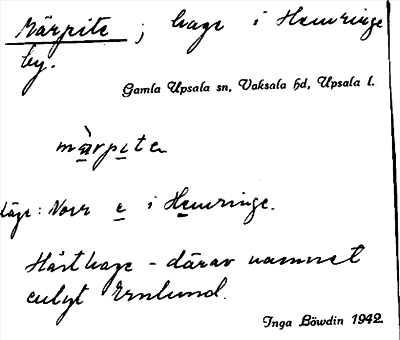 Märpite ; hage i Hemringe
by.
Gamla Upsala sn, Vaksala hd, Upsala l.
märpɩta
Läge: Norr e i Hemringe.
Hästhage – därav namnet
enligt Ernlund.
Inga Böwdin 1942.